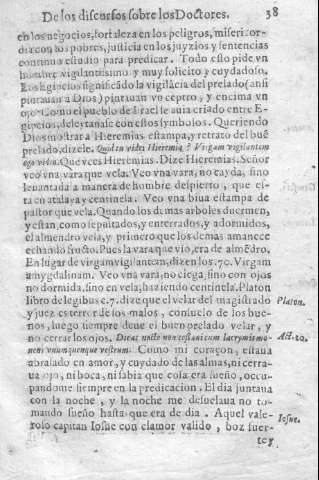 De los discursos sobre los Doctores. 38
en los negocios, fortaleza en los peligros, misericor-
dia con los pobres, justicia en los juyzios y sentencias
continuo estudio para predicar. Todo esto pide vn
hombre vigilantissimo y muy solicito y cuydadoso.
Los Egipcios significādo la vigilācia del prelado (ansi
pintauan a Dios) pintauan vn ceptro, y encima vn
ojo. Como el pueblo de Israel se auia criado entre E-
gipcios, deleytanse con estos symbolos. Queriendo
Dios mostrar a Hieremias estampa, y retrato del buē
prelado, dizele. Quid tu vides Hieremia? Virgam vigilantem
ego video. Que vees Hieremias. Dize Hieremias. Señor
veo vna vara que vela. Veo vna vara, no cayda, sino
leuantada a manera de hombre despierto, que es-
ta en atalaya y centinela. Veo vna biua estampa de
pastor que vela. Quando los demas arboles duermen,
y estan como sepultados, y enterrados, y adormidos,
el almendro vela, y primero que los demas amanece
echando fruto. Pues la vara que vio, era de almēdro.
En lugar de virgam vigilantean, dizen los .70. Virgam
amygdalinam. Veo vna vara, no ciega, sino con ojos
no dormida, sino en vela, haziendo centinela. Platon
libro de legibus c. 7. dize que el velar del magistrado
y juez es terror de los malos, consuelo de los bue-
nos, luego siempre deue el buen prelado velar, y
no cerrar los ojos. Die ac nocte non cessaui cum lacrymis mo-
nens vnumquemque vestrum. Como mi coraçon, estaua
abrasado en amor, y cuydado de las almas, ni cerra-
ua ojo, ni boca, ni sabia que cosa era sueño, occu-
pandome siempre en la predicacion. El dia juntaua
con la noche, y la noche me desuelaua no to-
mando sueño hasta que era de dia. Aquel vale-
roso capitan Iosue con clamor valido, boz fuer-
te y
Platon.
Act. 20.
Iosue.